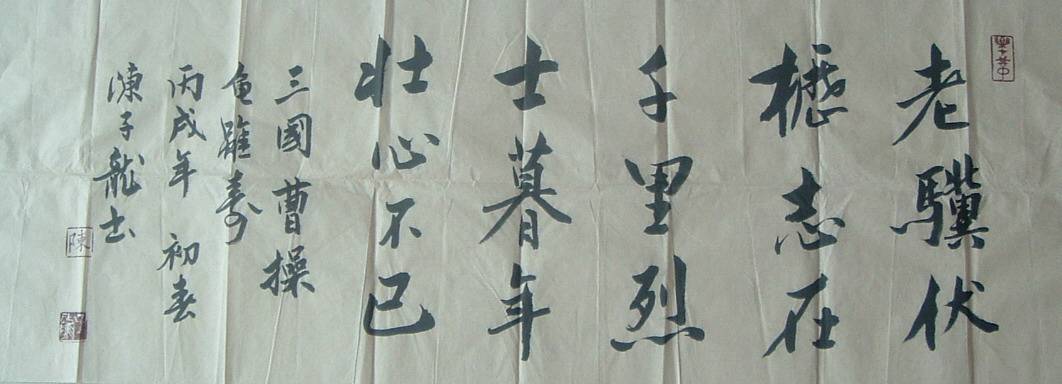 老驥伏
櫪志在
千里烈
士暮年
壯心不已
三國曹操
龟雖寿
丙戌年初春
陳子龍书
陳